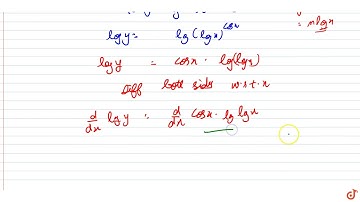 log y = lg (lgx)^cosx
= n lgn
log y = cosx . lg(lgx)
Diff both sides w.r.t.x
d/dx lg y = d/dx cosx . lg lgx